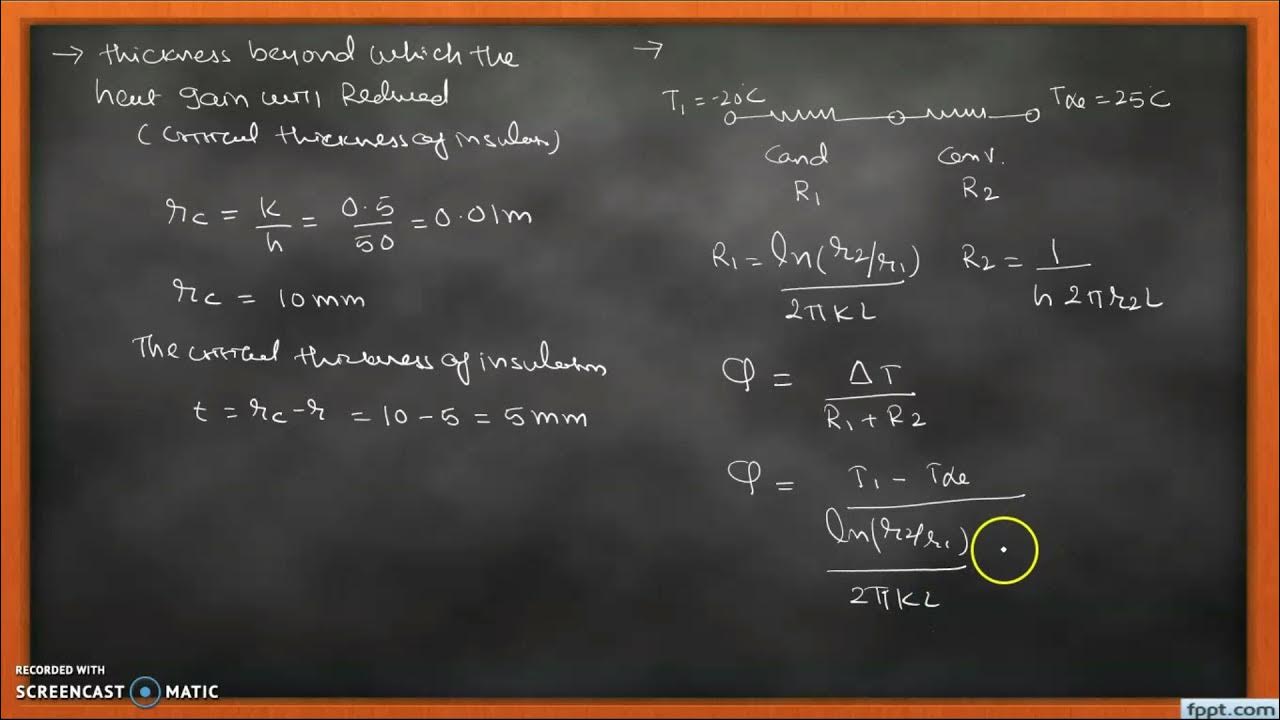 → thickness beyond which the
heat gain will Reduced
(critical thickness of insulan)
rc = K/h = 0.5/50 = 0.01m
rc = 10mm
The critical thickness of insulation
t = rc - r = 10 - 5 = 5mm
→
T1 = -20°C
T∞ = 25°C
Cond
Conv.
R1
R2
R1 = ln(r2/r1)/2πKL
R2 = 1/h2πr2L
φ = ΔT/R1+R2
φ = T1 - T∞
ln(r2/r1)
2πKL
RECORDED WITH
SCREENCAST MATIC
fppt.com